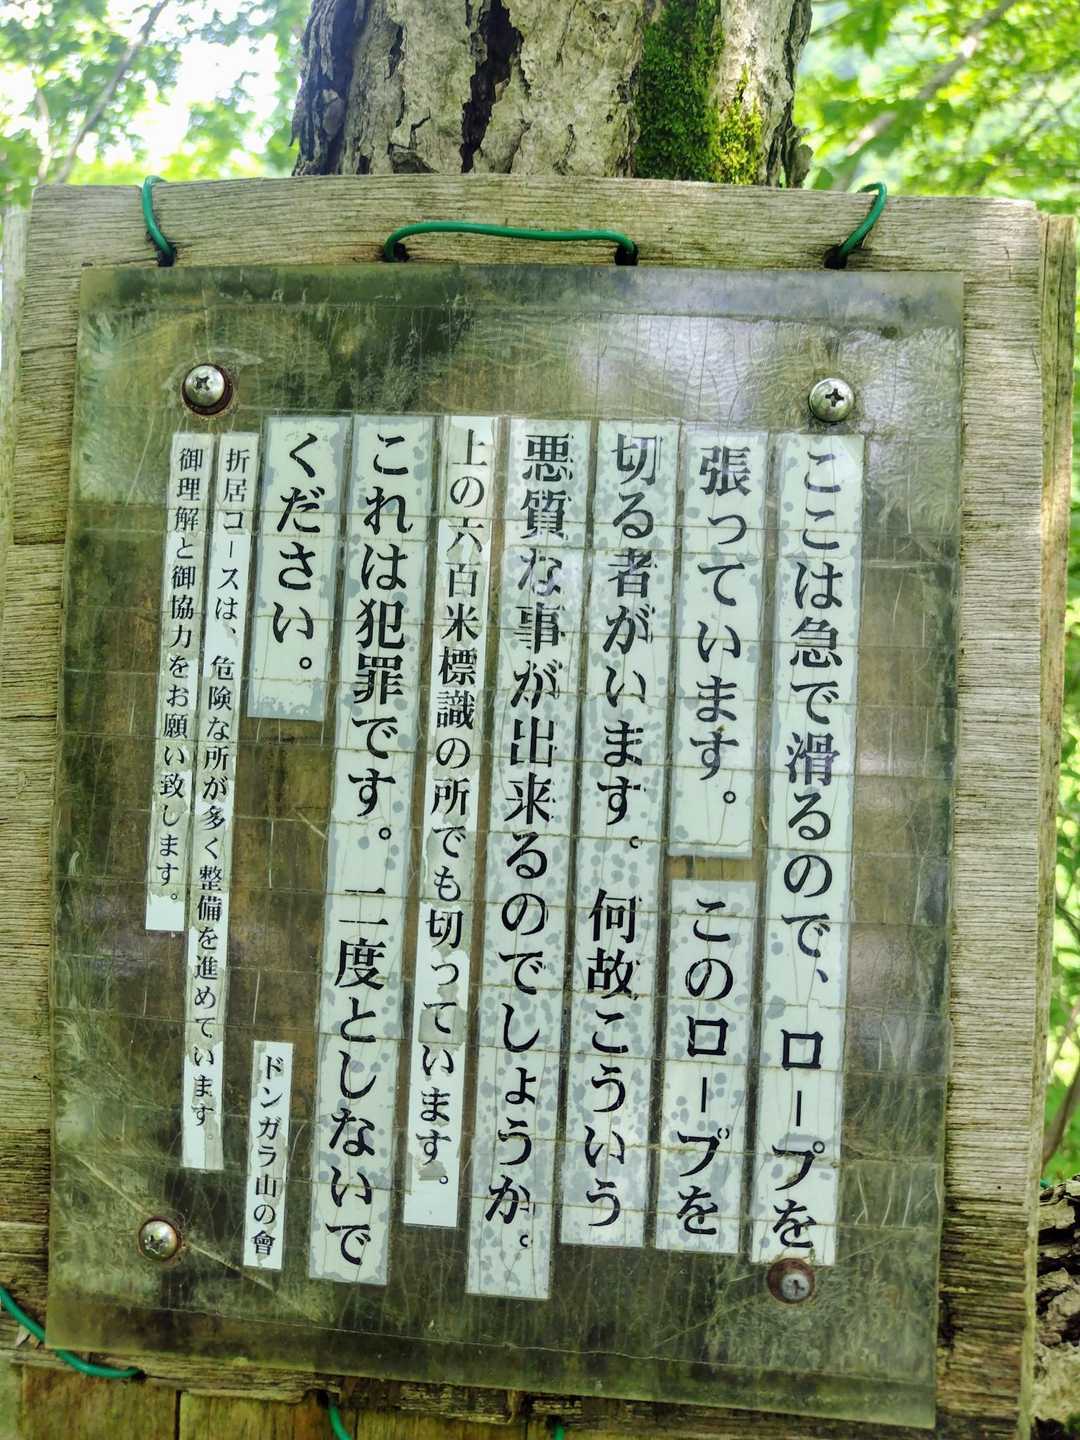 ここは急で滑るので、ロープを
張っています。このロープを
切る者がいます。何故こういう
悪質な事が出来るのでしょうか。
上の六百米標識の所でも切っています。
これは犯罪です。二度としないで
ください。
折居コースは、危険な所が多く整備を進めています。
御理解と御協力をお願い致します。
ドンガラ山の會